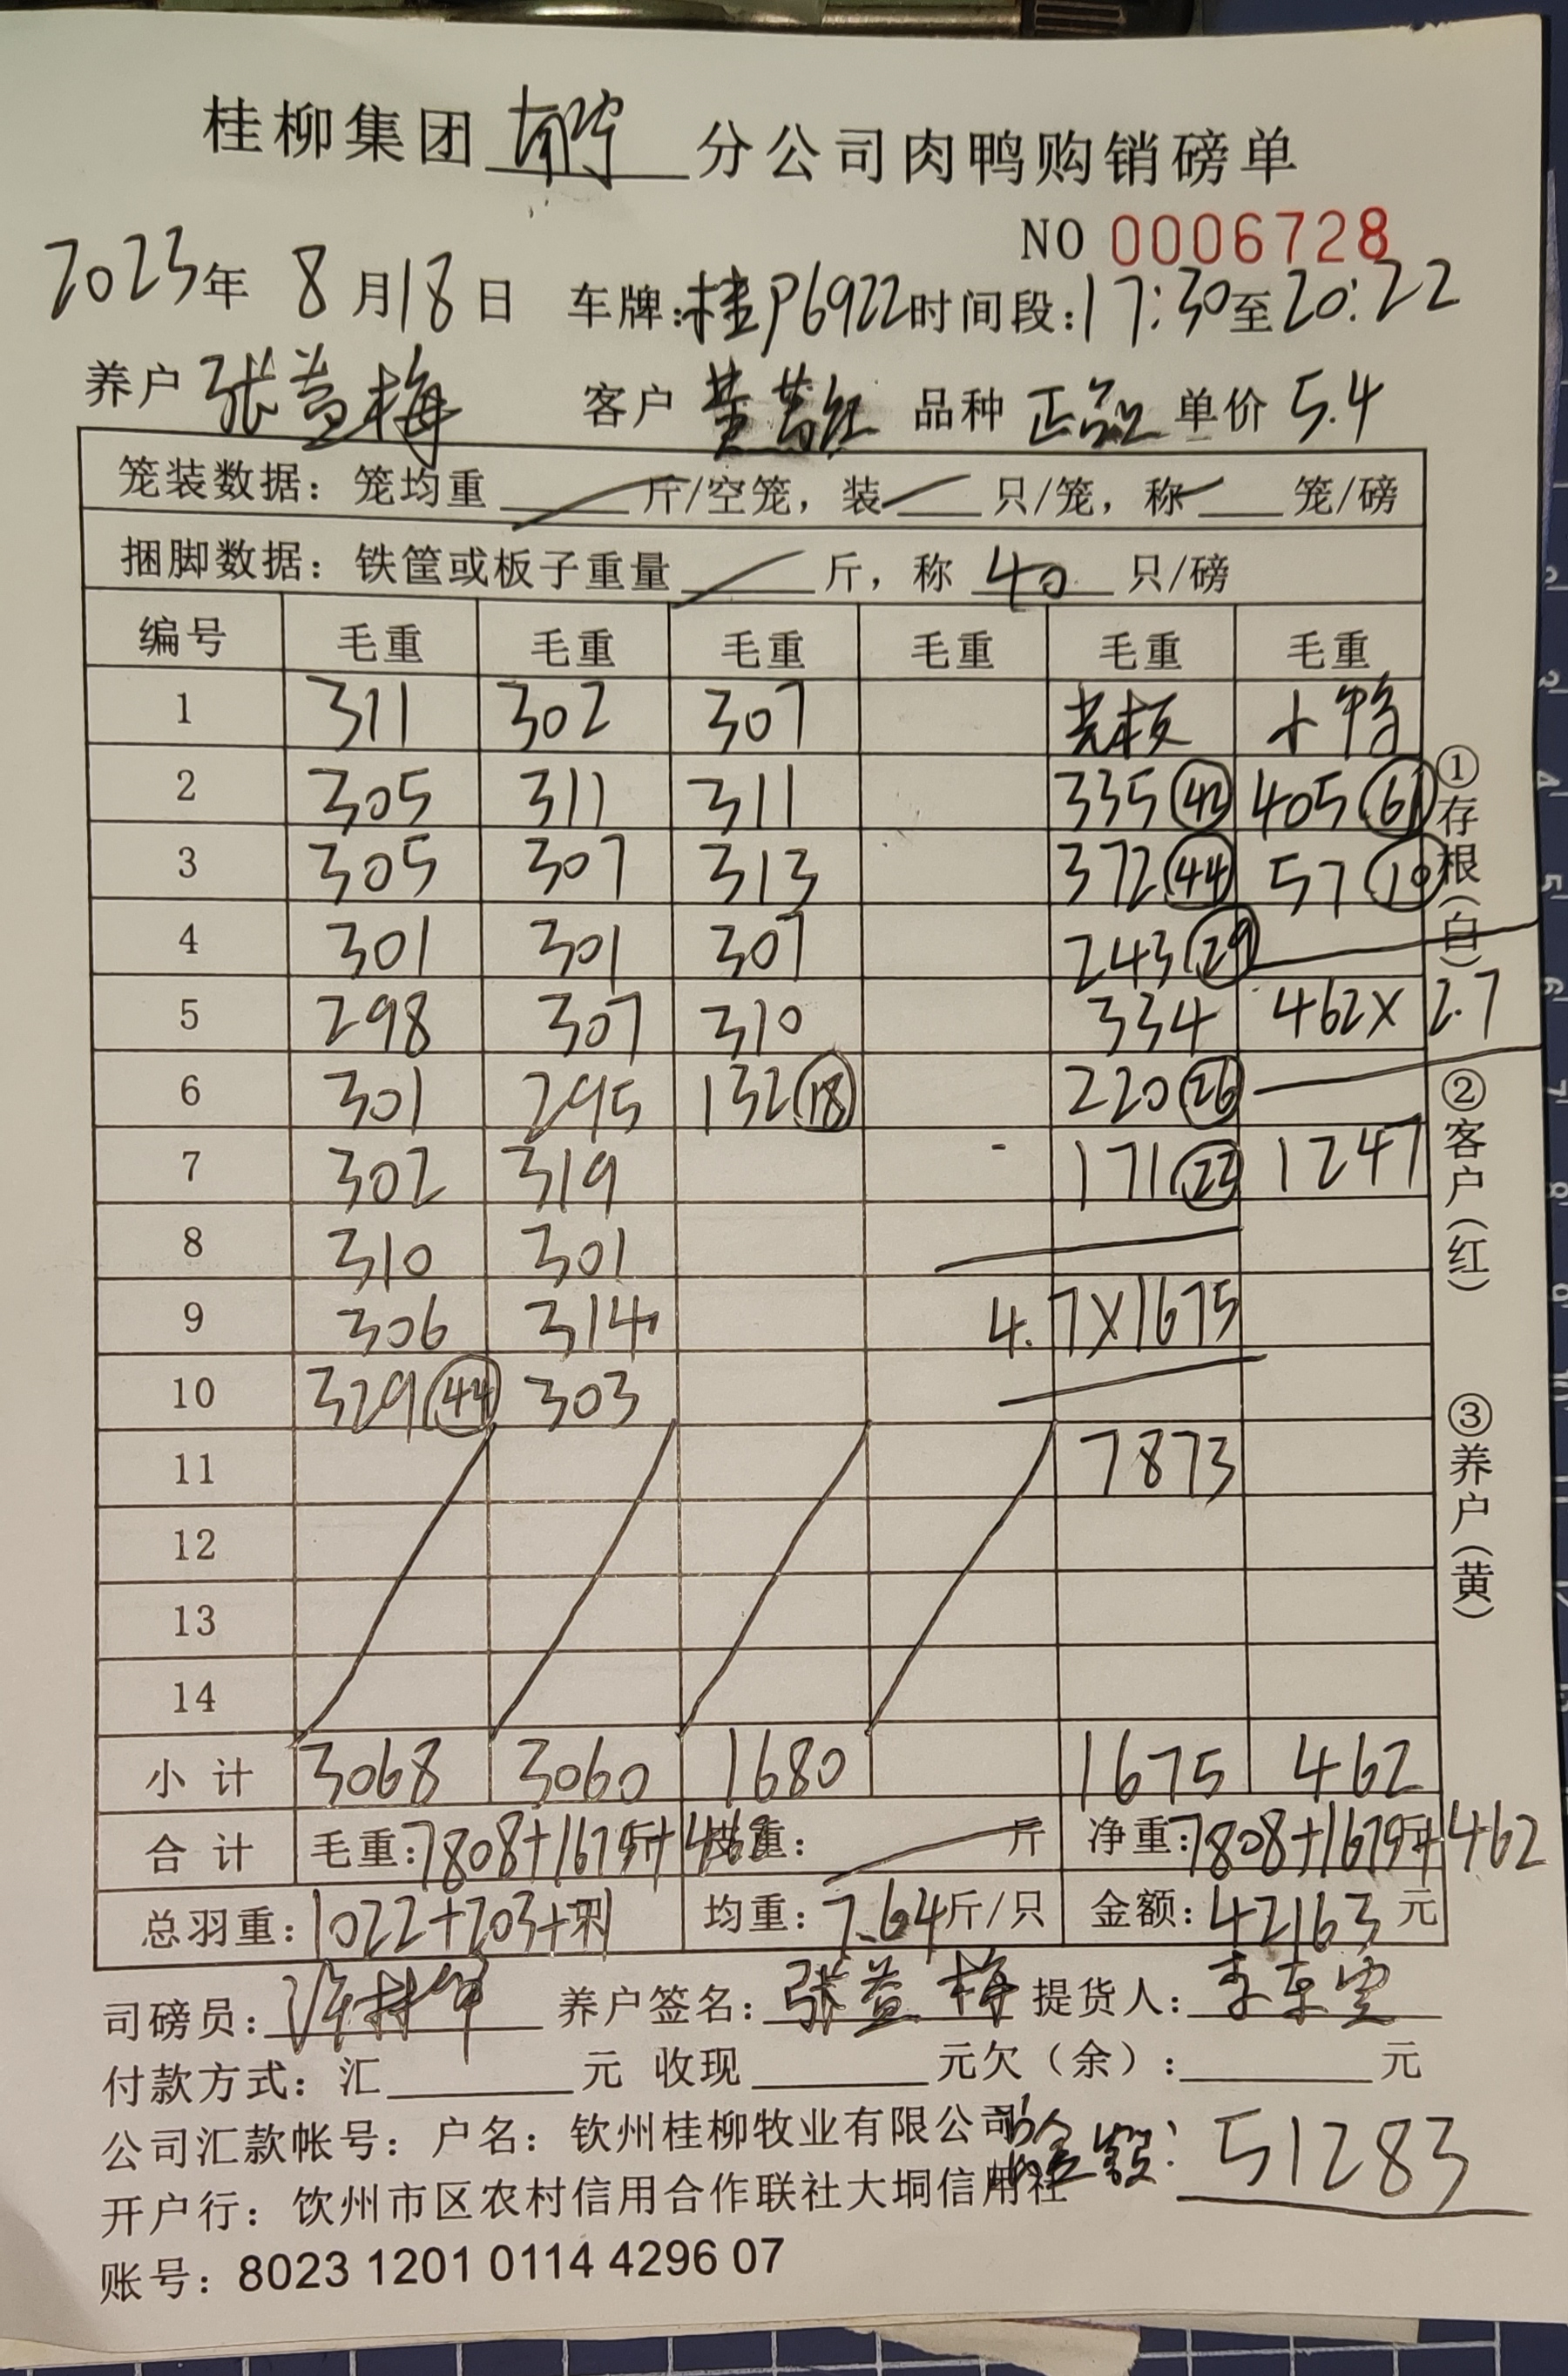 桂柳集团南宁分公司肉鸭购销磅单
NO 0006728
2023年 8月18日 车牌:桂P6922 时间段:17:30至20:22
养户 张益梅 客户 黄 品种 正品 单价 5.4
笼装数据: 笼均重 斤/空笼, 装 只/笼, 称 笼/磅
捆脚数据: 铁筐或板子重量 斤, 称 40 只/磅
编号 毛重 毛重 毛重 毛重 毛重 毛重
1 311 302 307 光板 小鸭
2 305 311 311 335 42 405 61
3 305 307 313 372 44 57 10
4 301 301 307 243 29
5 298 307 310 334 462X2.7
6 301 295 132 18 220 26
7 302 319 171 22 1247
8 310 301
9 306 314 4.7X1675
10 329 44 303
11 7873
12
13
14
小计 3068 3060 1680 1675 462
合计 毛重:7808+1675+462 皮重: 斤 净重:7808+1675+462
总羽重:1022+203+71 均重:7.64斤/只 金额:42163元
司磅员: 养户签名:张益梅 提货人:李东
付款方式: 汇 元 收现 元欠(余): 元
公司汇款帐号: 户名: 钦州桂柳牧业有限公司
总金额: 51283
开户行: 饮州市区农村信用合作联社大垌信用社
账号: 8023 1201 0114 4296 07
①存根(白)
②客户(红)
③养户(黄)